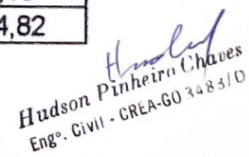 4,82
Hudson Pinheiro Chaves
Engº. Civil - CREA-GO 3483/D